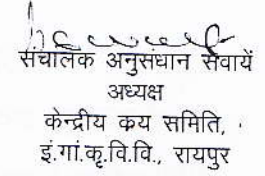 संचालक अनुसंधान सेवायें
अध्यक्ष
केन्द्रीय कय समिति,
इं.गां.कृ.वि.वि., रायपुर